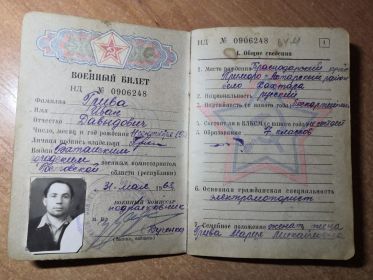 ВОЕННЫЙ БИЛЕТ
НД № 0906248
Фамилия Грива
Имя Иван
Отчество Давыдович
Число, месяц и год рождения
Личная подпись владельца
Выдан Батайским
городским военным комиссариатом
Ростовской области (республики)
31 мая 1965
ВОЕННЫЙ КОМИССАР
подполковник
НД № 0906248
1
1. Общие сведения
1. Место рождения Краснодарский край
Приморо-Ахтарский район
село
2. Национальность русский
3. Партийность (с какого года)
Состоит ли в ВЛКСМ (с какого года) не состоит
4. Образование 7 классов
6. Основная гражданская специальность
электромоторист
7. Семейное положение женат жена
Грива Мария Михайловна